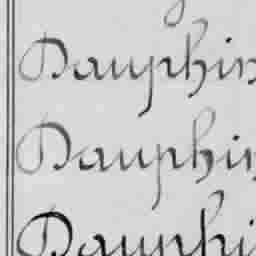 Dauphin
Dauphin
Dauphi